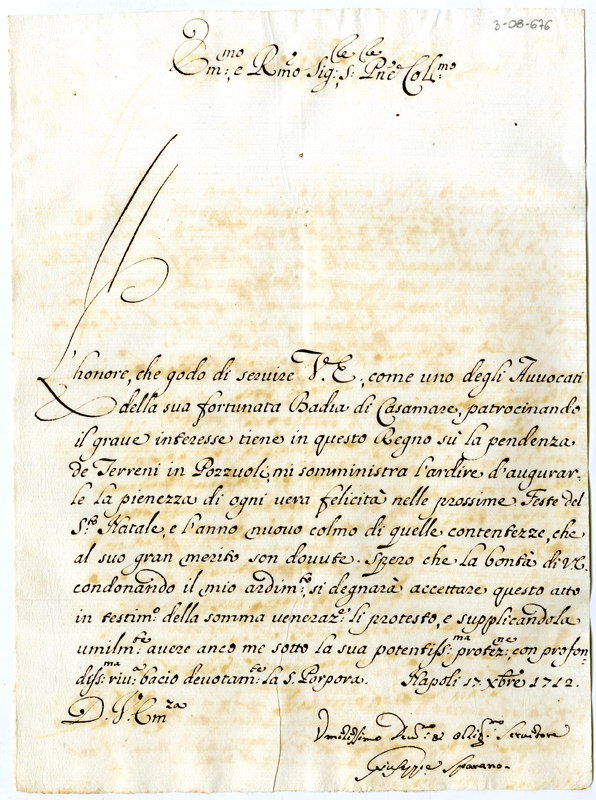 3-08-676
Em:mo e Rmo Sig:, s: Pne Coll:mo
L'honore, che godo di seruire V.E., come uno degli Auuocati
della sua fortunata Badia di Casamare, patrocinando
il graue interesse tiene in questo Regno sù la pendenza
de Terreni in Pozzuoli, mi somministra l'ardire d'augurar-
le la pienezza di ogni uera felicità nelle prossime Feste del
S:to Natale, e l'anno nuouo colmo di quelle contentezze, che
al suo gran merito son douute. Spero che la bontà di V.E.
condonando il mio ardim:to, si degnarà accettare questo atto
in testim:o della somma ueneraz:e li protesto, e supplicandola
umilm:te auere anco me sotto la sua potentiss:ma protez:ne, con profon-
diss:ma riu:a bacio deuotam:te la s: Porpora. Napoli 17 Xbre 1712.
D. V. Em:za
Vmilissimo Deu:mo et oblig:mo Seruitore
Giuseppe Sparano.